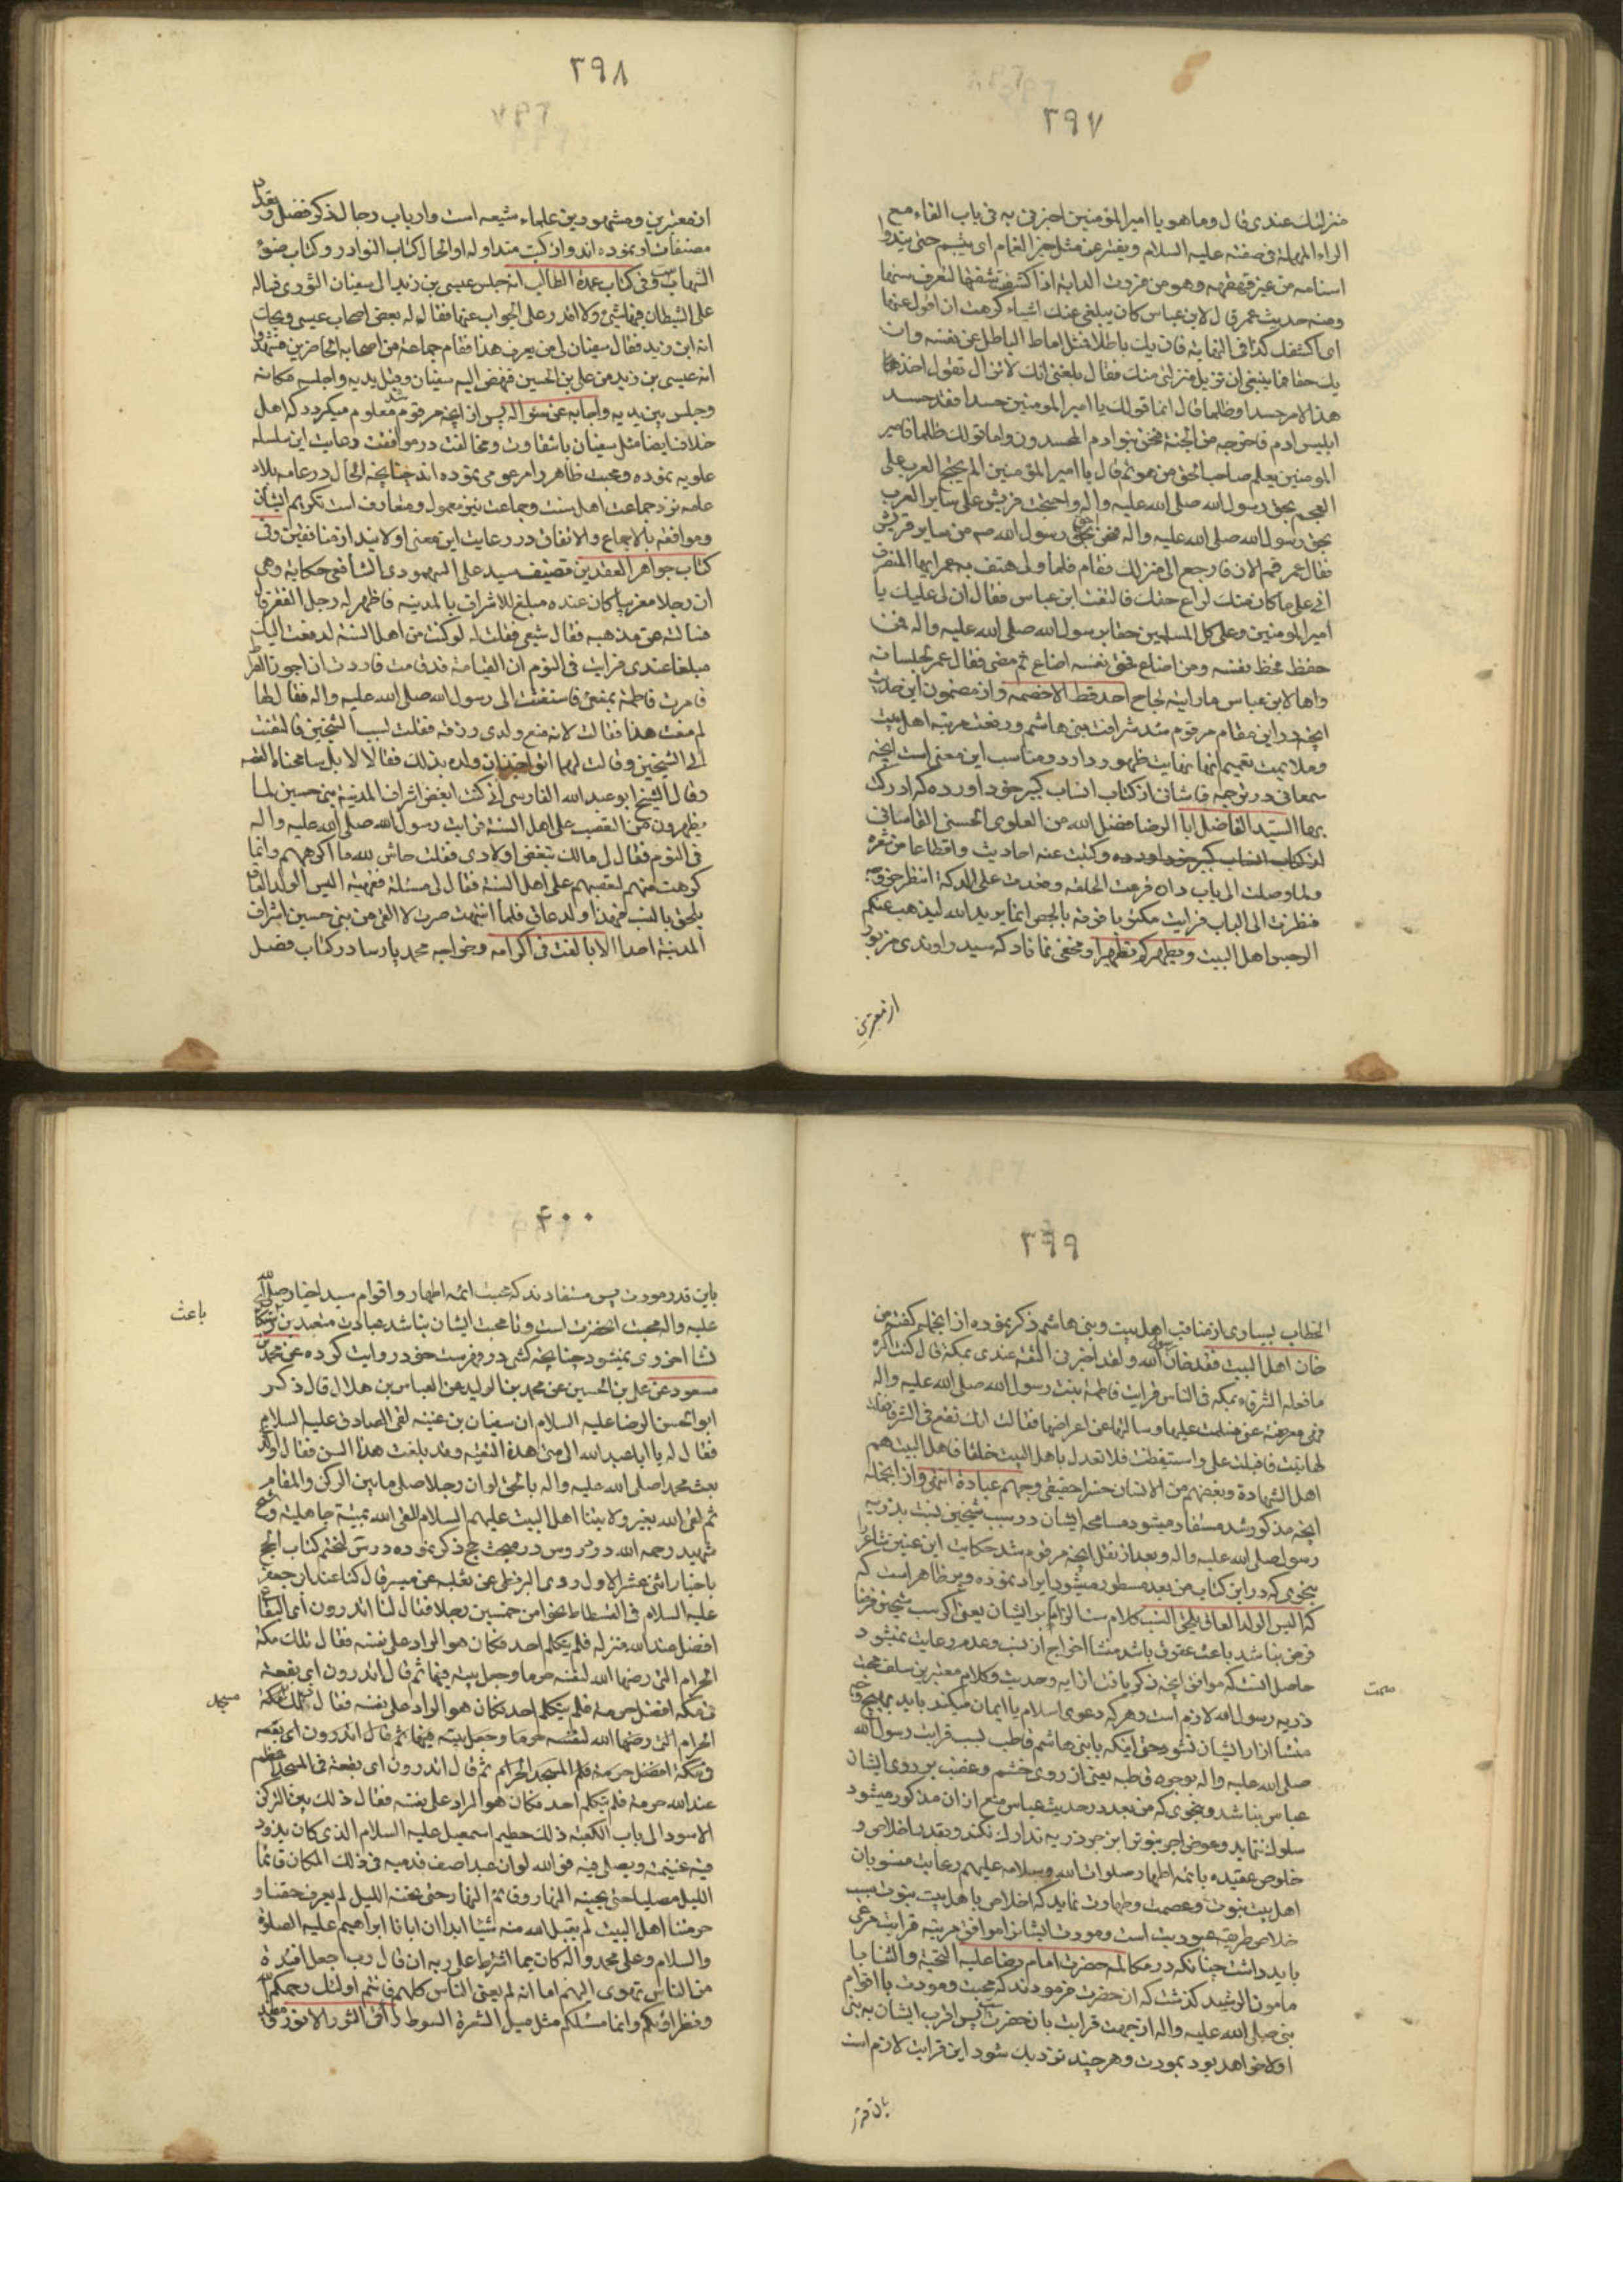 ٣٩٧
منزلتك عندى قال وما هو يا امير المؤمنين اخبرنى به فى باب الفاء مع
الراء المهملة فى صفته عليه السلام ويفتر عن مثل حبّ الغمام اى يتبسم حتى يبدو
اسنانه من غير قهقهه وهو من فررت الدابة اذا كشفت شفتها لتعرف سنها
ومنه حديث عمر قال لابن عباس كان يبلغنى عنك اشياء كرهت ان افرك عنها
اى اكشفك كذا فى النهاية فان يك باطلا فمثلى اماط الباطل عن نفسه وان
يك حقا فما ينبغى ان تزيل منزلتى منك فقال بلغنى انك لا تزال تقول اخذ
هذا الامر حسدا وظلما قال اما قولك يا امير المومنين حسدا فقد حسد
ابليس ادم فاخرجه من الجنة فنحن بنو ادم المحسدون واما قولك ظلما فامير
المومنين يعلم صاحب الحق من هو ثم قال يا امير المؤمنين الم يحتج العرب على
العجم بحق رسول الله صلى الله عليه واله واحتجت قريش على سائر العرب
بحق رسول الله صلى الله عليه واله فنحن احق رسول الله صه من ساير قريش
فقال عمر قم الان فارجع الى منزلك فقام فلما ولى هتف به عمر ايها المنصرف
انى على ما كان منك لراع حقك فالتفت ابن عباس فقال ان لى عليك يا
امير المومنين وعلى كل المسلمين حقا برسول الله صلى الله عليه واله فمن
حفظه فحظ نفسه ومن اضاع فحق نفسه اضاع ثم مضى فقال عمر لجلسائه
واها لابن عباس ما رايته لجاح احد قط الا خصمه واز مضمون اين حديث
انچه در اين مقام مرقوم شد شرافت بنى هاشم ورفعت مرتبه اهل بيت
وملايمت تعميم انها نهايت ظهور دارد ومناسب اين معنى است انچه
سمعانى در ترجمه قاشان از كتاب انساب كبير خود آورده كه ادركت
بها السيد الفاضل ابا الرضا فضل الله من العلوى الحسنى القاسانى
از كتاب انساب كبير خود آورده وكتبت عنه احاديث واقطاعا من شعره
ولما وصلت الى باب داره قرعت الحلقه وقعدت على الدكة انتظر خروجه
فنظرت الى الباب فرايت مكتوبا فوقه بالجص انما يريد الله ليذهب عنكم
الرجس اهل البيت ويطهركم تطهيرا ومخفى نماناد كه سيد راوندى مزبور
از معتبرين
٣٩٨
از معتبرين ومشهورين علماء شيعه است وارباب رجال ذكر فضل وتعداد
مصنفات او نموده اند واز كتب متداوله او الحال كتاب النوادر وكتاب ضوء
الشهاب وفى كتاب عمدة الطالب انه جلس عيسى بن زيد الى سفيان الثورى فساله
على الشيطان فيها شئ ولا اقدر على الجواب عنها فقال له بعض اصحاب عيسى ويحك
انه ابن زيد فقال سفيان لى من يعرف هذا فقام جماعة من اصحابه الحاضرين فشهدوا
انه عيسى بن زيد بن على بن الحسين فنهض اليه سفيان وقبل يديه واجلسه مكانه
وجلس بين يديه واجابه عن سؤاله پس از انچه مرقوم شد معلوم ميكردد كه اهل
خلاف ايضا مثل سفيان با شقاوت ومخالفت در موافقت رعايت اين سلسله
علويه نموده ومحبت ظاهر را مرعى مى نموده اند چنانچه الحال در عامه بلاد
عامه نزد جماعت اهل سنت وجماعت نيز معمول ومتعارف است تكريم ايشان
وموافقه بالاجماع والاتفاق در رعايت اين معنى اولايند از منافقين وفى
كتاب جواهر العقدين تصنيف سيد على السمهودى الشافعى حكاية وهى
ان رجلا مغربيا كان عنده مبلغ للاشراف بالمدينه فاظهر له رجل الفقر قال
فسالته عن مذهبه فقال شيعى فقلت له لو كنت من اهل السنة لدفعت اليك
مبلغا عندى فرايت فى النوم ان القيامة قد قامت فاردت ان اجوز الصراط
فامرت فاطمة بمنعى فاستغثت الى رسول الله صلى الله عليه واله فقال لها
لم منعت هذا فقالت لانه منع ولدى رزقه فقلت لسب الشيخين فالتفتت
الى الشيخين وقالت لهما اتؤاخذان ولدى بذلك فقالا لا بل سامحناه القصه
وقال الشيخ ابو عبد الله الفارسى انى كنت ابغض اشراف المدينة بنى حسين لما
يظهرون من التعصب على اهل السنة فرايت رسول الله صلى الله عليه واله
فى النوم فقال لى مالك تبغض اولادى فقلت حاش لله ما اكرههم وانما
كرهت منهم تعصبهم على اهل السنة فقال لى مسئلة فقهية اليس الولد العاق
يلحق بالنسب فهذا ولد عاق فلما انتبهت صرت لا القى من بنى حسين اشراف
المدينة احدا الا بالغت فى اكرامه وخواجه محمد پارسا در كتاب فصل
٣٩٩
الخطاب بسيارى از مناقب اهل بيت وبنى هاشم ذكر نموده از انجمله كفته من
خان اهل البيت فقد خان رسول الله ولقد اخبرنى الثقة عندى بمكه قال كنت اكره
ما فعله الشرفاء بمكه فى الناس فرايت فاطمة بنت رسول الله صلى الله عليه واله
فهى معرضة عنى فسلمت عليها وسالتها عن اعراضها فقالت انك تقع فى الشرفاء فقلت
لها تبت فاقبلت على واستيقظت فلا تعدل باهل البيت خلقا فاهل البيت هم
اهل الشهادة وبغضهم من الانسان خسر حقيقى وحبهم عبادة انتهى واز انجمله
انچه مذكور شد مستفاد ميشود مسامحه ايشان در سب شيخين نسبت بذريه
رسول صلى الله عليه واله وبعد از نقل انچه مرقوم شد حكايت ابن عنين شاعر
بنحوى كه در اين كتاب من بعد مسطور ميشود ايراد نموده وبر ظاهر است كه
كه اليس الولد العاق يلحق النسب كلام سنا لزام بر ايشان يعنى اكر سب شيخين فرضا
فرض نباشد باعث عقوق باشد منشا اخراج از نسب وعدم رعايت نميشود
حاصل انست كه موافق انچه ذكر يافت از ايه وحديث وكلام معتبرين سلف محبت
ذريه رسول الله لازم است وهر كه دعوى اسلام يا ايمان ميكند بايد بهيچ وجه
منشا ازار ايشان نشود حتى اينكه با بنى هاشم قاطبه بسبب قرابت رسول الله
صلى الله عليه واله بوجوه قاطبه يعنى از روى خشم وغضب بر روى ايشان
عباس نباشد وبنحوى كه من بعد در حديث عباس منع از ان مذكور ميشود
سلوك ننمايد وعوض اجر نبوت را بر جور ذريه تدارك نكند وبقدر اخلاص و
خلوص عقيده با ائمه اطهار صلوات الله وسلامه عليهم رعايت منسوبان
اهل بيت نبوت وعصمت وطهارت نمايد كه اخلاص با هل بيت نبوت بسبب
خلاص طريقه عبوديت است ومودت ايشانرا موافق مرتبه قرابت مرعى
بايد داشت چنانكه در مكالمه حضرت امام رضا عليه التحية والثنا با
مامون الرشيد كذشت كه ان حضرت فرمودند كه محبت ومودت با اقوام
نبى صلى الله عليه واله از جهت قرابت با نحضرت است پس اقرب ايشان به نبى
اولا خواهد بود بمودت وهر چند نزديك شود اين قرابت لازم است
باين قدر
صحت
٤٠٠
باين قدر مودت پس مستفاد ند كه محبت ائمه اطهار واقوام سيد اخيار صلى الله
عليه واله محبت انحضرت است وتا محبت ايشان نباشد عبادت متعبدين
نشا اخروى نميشود چنانچه كشى در فهرست خود روايت كرده عن محمد بن
مسعود عن على بن الحسين عن محمد بن الوليد عن العباس بن هلال قال ذكر
ابو الحسن الرضا عليه السلام ان سفيان بن عيينه لقى الصادق عليه السلام
فقال له يا ابا عبد الله الى متى هذه التقية وقد بلغت هذا السن فقال والذى
بعث محمدا صلى الله عليه واله بالحق لو ان رجلا صلى ما بين الركن والمقام
ثم لقى الله بغير ولايتنا اهل البيت عليهم السلام للقى الله بميتة جاهلية وشيخ
شهيد رحمه الله در دروس در مبحث حج ذكر نموده درس لنختم كتاب الحج
باخبار اثنى عشر الاول روى البزنطى عن ثعلبه عن ميسر قال كنا عند ابى جعفر
عليه السلام فى الفسطاط نحوا من خمسين رجلا فقال لنا اتدرون اى البقاع
افضل عند الله منزله فلم يتكلم احد فكان هو الراد على نفسه فقال تلك مكة
الحرام التى رضيها الله لنفسه حرما وجعل بيته فيها ثم قال اتدرون اى بقعة
فى مكه افضل حرمة فلم يتكلم احد فكان هو الراد على نفسه فقال تلك مكة
الحرام التى رضيها الله لنفسه حرما وجعل بيته فيها ثم قال اتدرون اى بقعه
فى مكة افضل حرمة فلم المسجد الحرام ثم قال اتدرون اى بقعة فى المسجد اعظم
عند الله حرمة فلم يتكلم احد فكان هو الراد على نفسه فقال ذلك بين الركن
الاسود الى باب الكعبة ذلك حطيم اسمعيل عليه السلام الذى كان يذود
فيه غنيمته ويصلى فيه فو الله لو ان عبدا صف قدميه فى ذلك المكان قائما
الليل مصليا حتى يجيئه النهار وقائم النهار حتى يجنه الليل لم يعرف حقنا و
حرمتنا اهل البيت لم يقبل الله منه شيئا ابدا ان ابانا ابراهيم عليه الصلوة
والسلام وعلى محمد واله كان فيما اشترط على ربه ان قال رب اجعل افئدة
من الناس تهوى اليهم اما انه لم يعن الناس كلهم فانتم اولئك رحمكم الله
ونظراؤكم وانما مثلكم مثل ميل الشعرة السوداء فى الثور الانور
باعث
مسجد